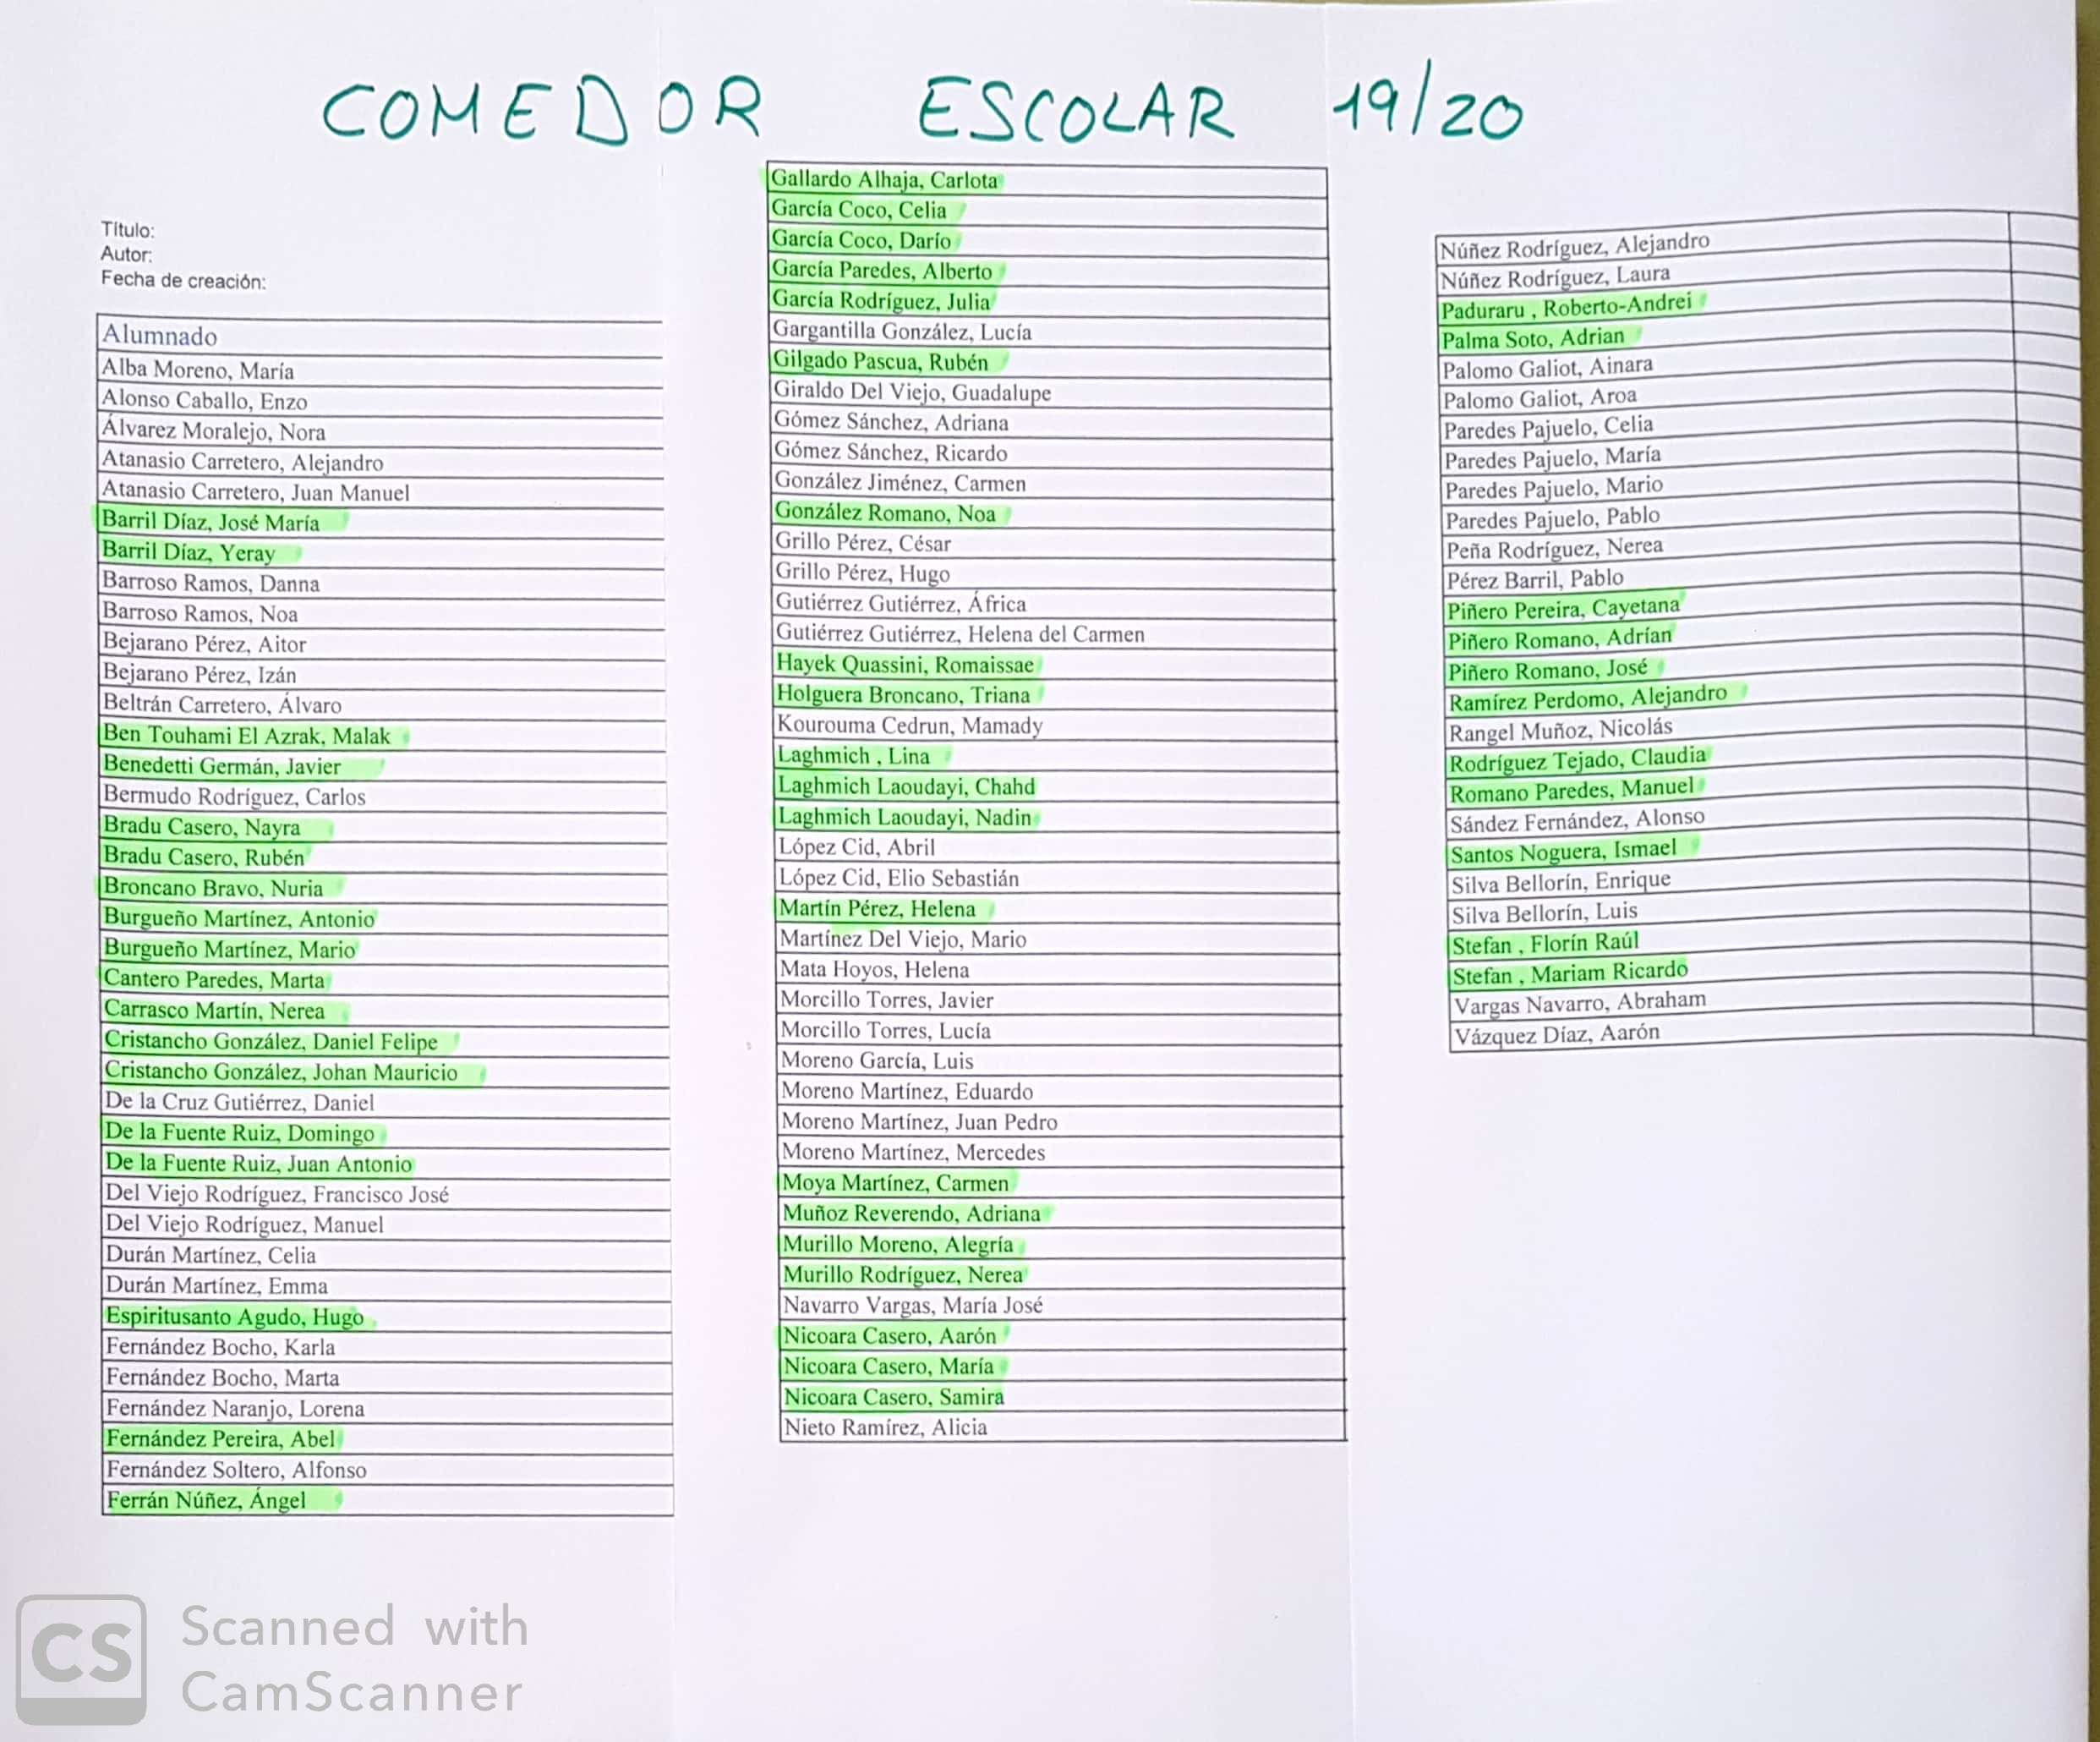 COMEDOR ESCOLAR 19/20
Título:
Autor:
Fecha de creación:
Alumnado
Alba Moreno, María
Alonso Caballo, Enzo
Álvarez Moralejo, Nora
Atanasio Carretero, Alejandro
Atanasio Carretero, Juan Manuel
Barril Díaz, José María
Barril Díaz, Yeray
Barroso Ramos, Danna
Barroso Ramos, Noa
Bejarano Pérez, Aitor
Bejarano Pérez, Izán
Beltrán Carretero, Álvaro
Ben Touhami El Azrak, Malak
Benedetti Germán, Javier
Bermudo Rodríguez, Carlos
Bradu Casero, Nayra
Bradu Casero, Rubén
Broncano Bravo, Nuria
Burgueño Martínez, Antonio
Burgueño Martínez, Mario
Cantero Paredes, Marta
Carrasco Martín, Nerea
Cristancho González, Daniel Felipe
Cristancho González, Johan Mauricio
De la Cruz Gutiérrez, Daniel
De la Fuente Ruiz, Domingo
De la Fuente Ruiz, Juan Antonio
Del Viejo Rodríguez, Francisco José
Del Viejo Rodríguez, Manuel
Durán Martínez, Celia
Durán Martínez, Emma
Espiritusanto Agudo, Hugo
Fernández Bocho, Karla
Fernández Bocho, Marta
Fernández Naranjo, Lorena
Fernández Pereira, Abel
Fernández Soltero, Alfonso
Ferrán Núñez, Ángel
Gallardo Alhaja, Carlota
García Coco, Celia
García Coco, Darío
García Paredes, Alberto
García Rodríguez, Julia
Gargantilla González, Lucía
Gilgado Pascua, Rubén
Giraldo Del Viejo, Guadalupe
Gómez Sánchez, Adriana
Gómez Sánchez, Ricardo
González Jiménez, Carmen
González Romano, Noa
Grillo Pérez, César
Grillo Pérez, Hugo
Gutiérrez Gutiérrez, África
Gutiérrez Gutiérrez, Helena del Carmen
Hayek Quassini, Romaissae
Holguera Broncano, Triana
Kourouma Cedrun, Mamady
Laghmich , Lina
Laghmich Laoudayi, Chahd
Laghmich Laoudayi, Nadin
López Cid, Abril
López Cid, Elio Sebastián
Martín Pérez, Helena
Martínez Del Viejo, Mario
Mata Hoyos, Helena
Morcillo Torres, Javier
Morcillo Torres, Lucía
Moreno García, Luis
Moreno Martínez, Eduardo
Moreno Martínez, Juan Pedro
Moreno Martínez, Mercedes
Moya Martínez, Carmen
Muñoz Reverendo, Adriana
Murillo Moreno, Alegría
Murillo Rodríguez, Nerea
Navarro Vargas, María José
Nicoara Casero, Aarón
Nicoara Casero, María
Nicoara Casero, Samira
Nieto Ramírez, Alicia
Núñez Rodríguez, Alejandro
Núñez Rodríguez, Laura
Paduraru , Roberto-Andrei
Palma Soto, Adrian
Palomo Galiot, Ainara
Palomo Galiot, Aroa
Paredes Pajuelo, Celia
Paredes Pajuelo, María
Paredes Pajuelo, Mario
Paredes Pajuelo, Pablo
Peña Rodríguez, Nerea
Pérez Barril, Pablo
Piñero Pereira, Cayetana
Piñero Romano, Adrían
Piñero Romano, José
Ramírez Perdomo, Alejandro
Rangel Muñoz, Nicolás
Rodríguez Tejado, Claudia
Romano Paredes, Manuel
Sández Fernández, Alonso
Santos Noguera, Ismael
Silva Bellorín, Enrique
Silva Bellorín, Luis
Stefan , Florín Raúl
Stefan , Mariam Ricardo
Vargas Navarro, Abraham
Vázquez Díaz, Aarón
CS Scanned with
CamScanner